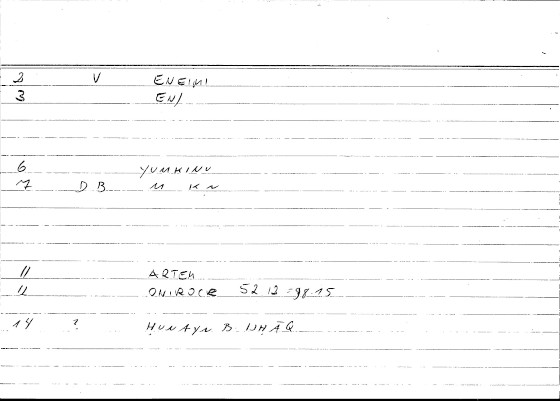 2 V ENEIMI
3 EN/
6 YUMKINU
7 DB M KN
11 ARTEM
12 ONIROCR 52 12 - 98.15
14 ? HUNAYN B. ISHĀQ